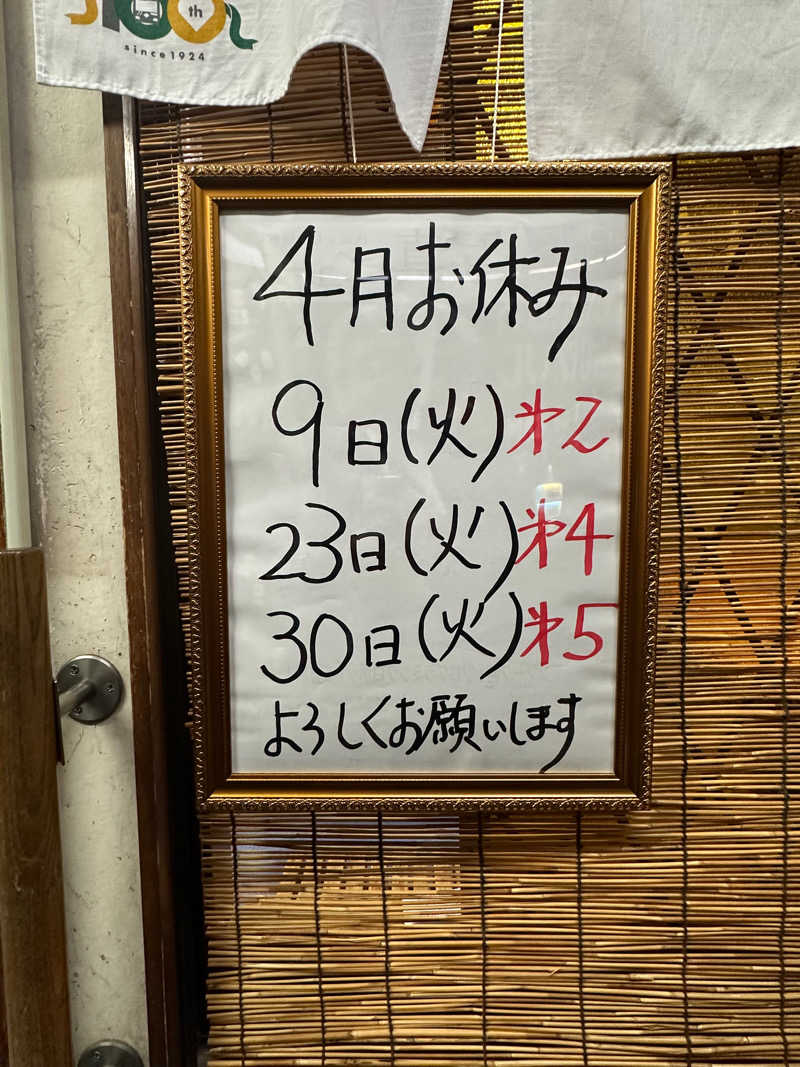 100th
since1924
4月お休み
9日(火)第2
23日(火)第4
30日(火)第5
よろしくお願いします